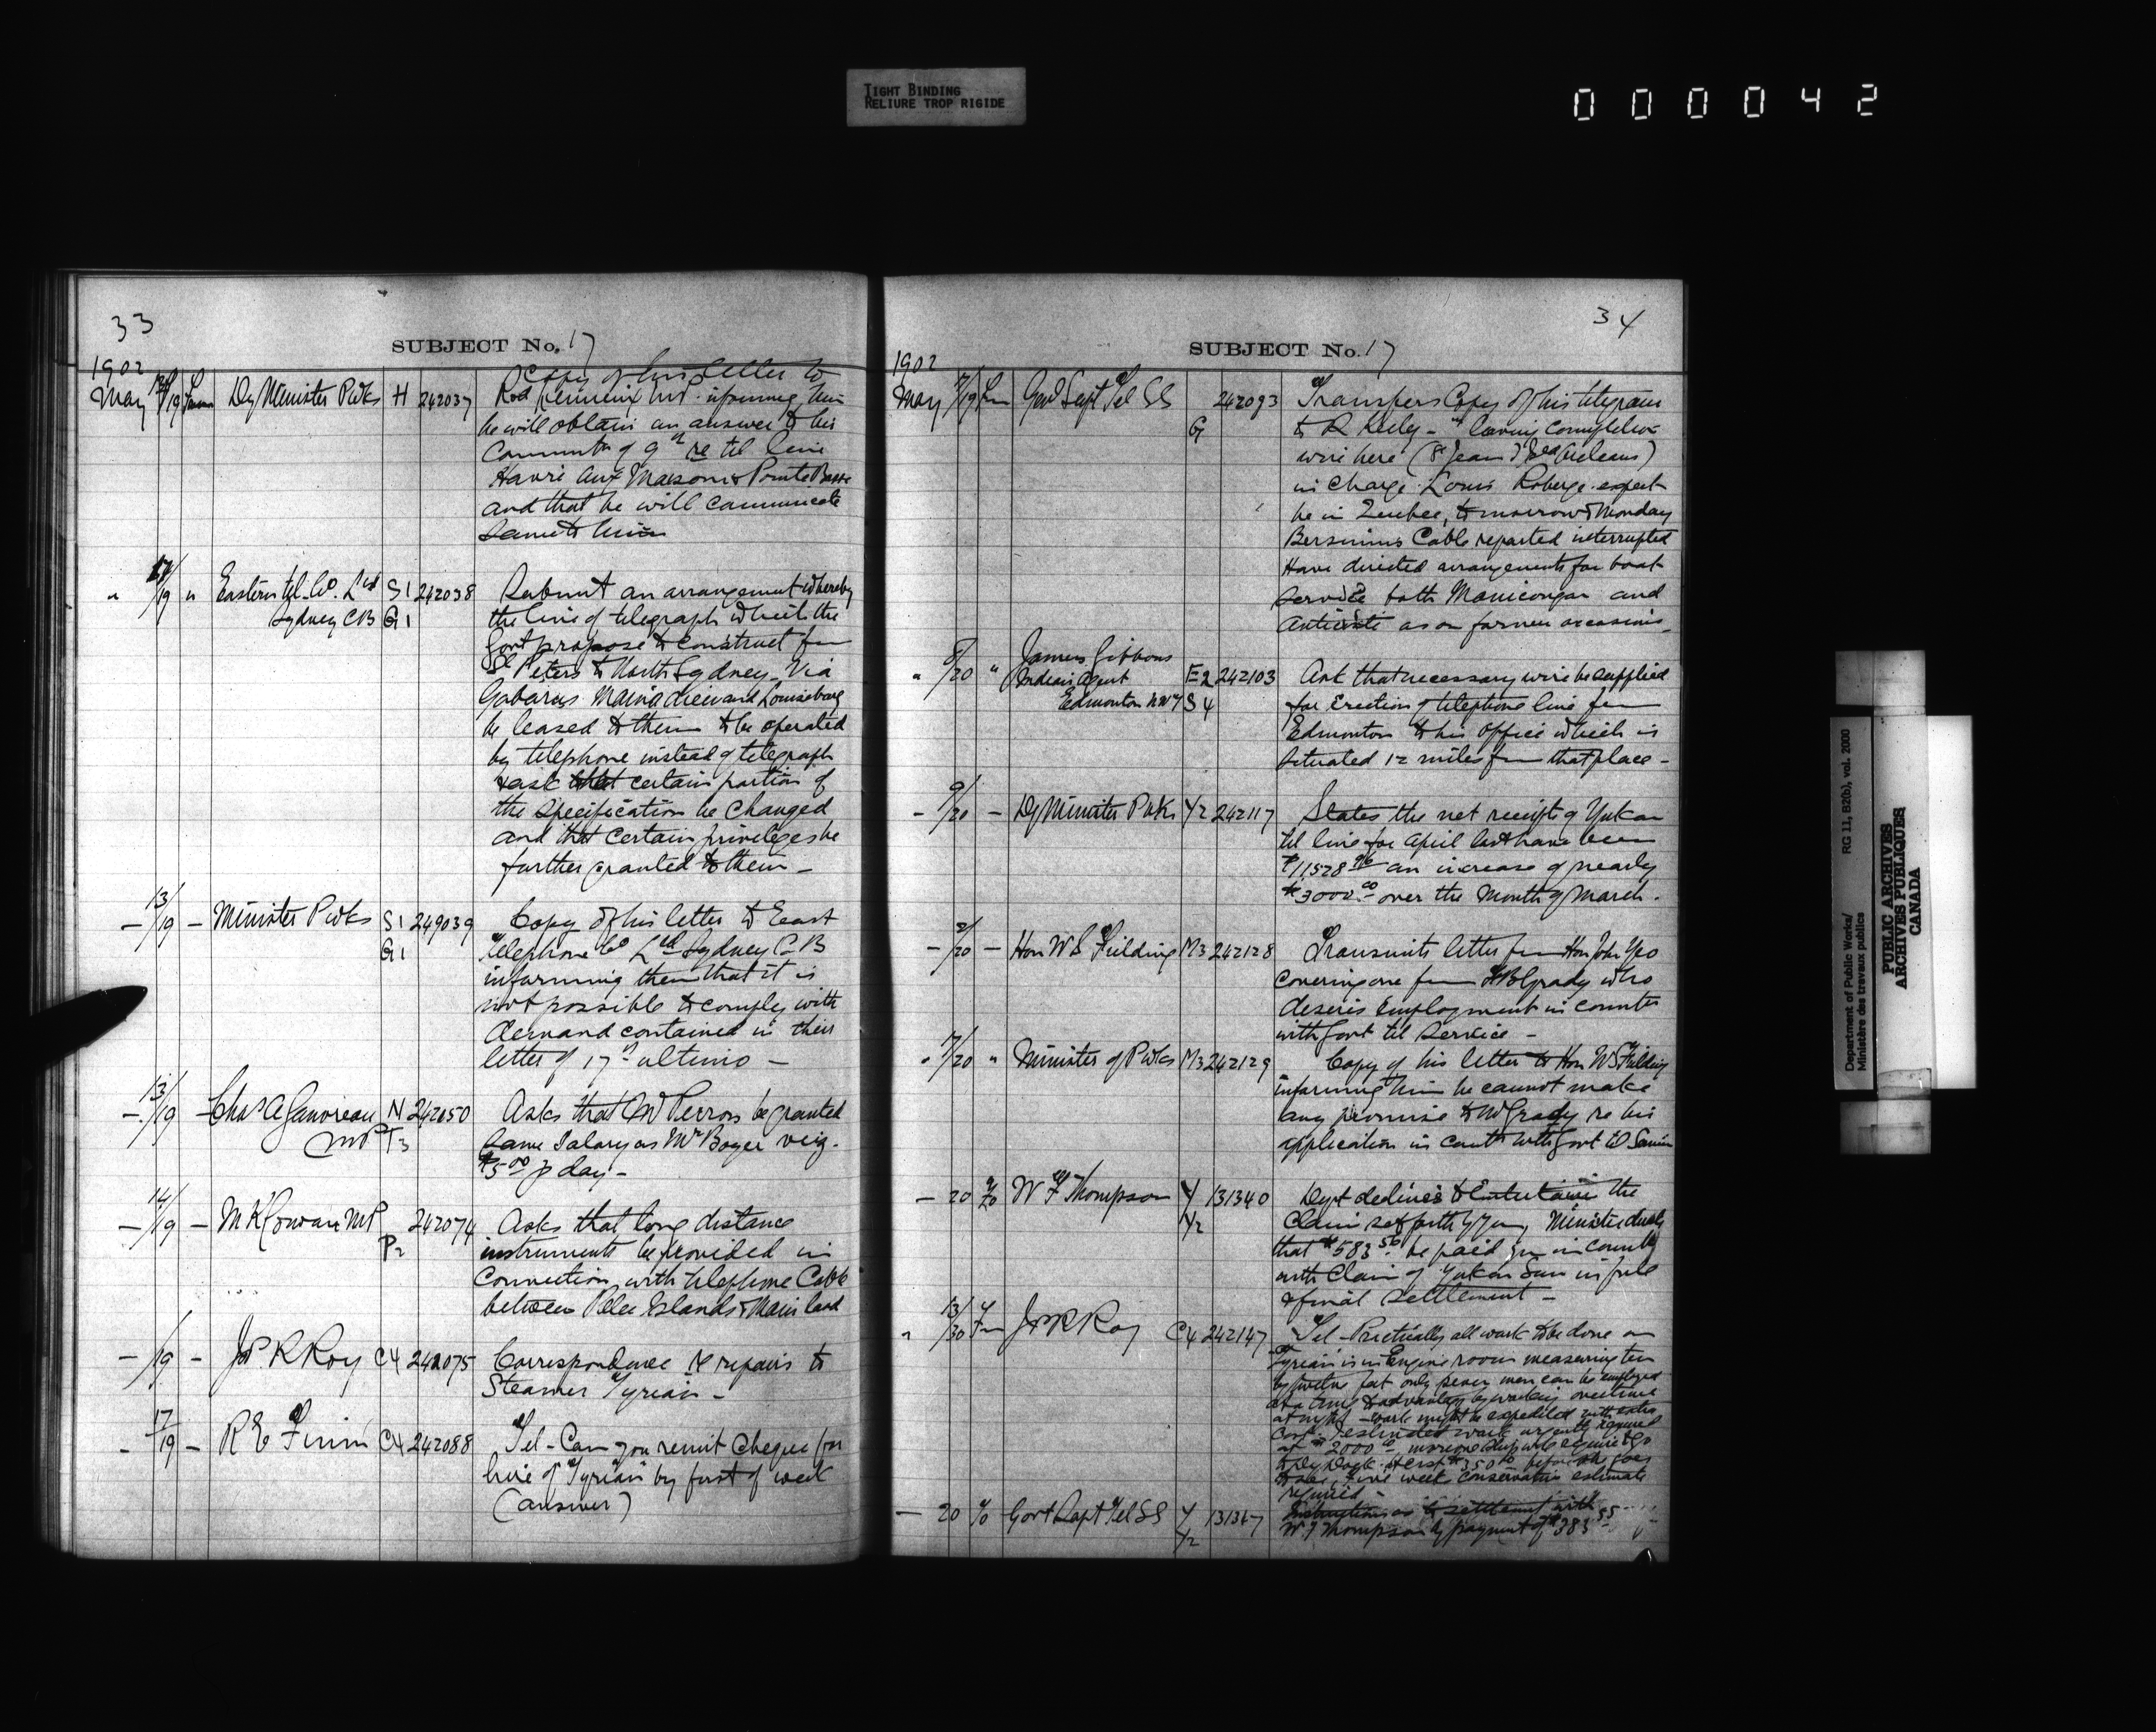 TIGHT BINDING
RELIURE TROP RIGIDE
000042
33
SUBJECT No. 17
1902
May 19 Dy Minister P Wks H 242037 Copy of his letter to
Rod Lemieux MP. informing him
he will obtain an answer to his
Commun of 9th re tel line
Havre aux Maisons & Pointe Basse
and that he will communicate
same to him
" 17/19 " Eastern tel. Co. Ltd S1 242038 Submit an arrangement whereby
Sydney CB G1 the line of telegraph which the
Govt propose to construct fm
St Peters to North Sydney Via
Gabarus Mainadieu and Louisburg
be leased to them to be operated
by telephone instead of telegraph
& ask that certain portion of
the specification be changed
and that certain privileges be
further granted to them —
— 13/19 — Minister P Wks S1 249039 Copy of his letter to East
G1 Telephone Co Ltd Sydney C B
informing them that it is
not possible to comply with
demand contained in their
letter of 17th ultimo —
— 13/19 — Chas A Gauvreau N 242050 Asks that Mr Perron be granted
MP T3 same Salary as Mr Boyer viz.
$5.00 p day —
— 14/19 — M K Cowan MP 242074 Asks that long distance
P2 instruments be provided in
Connection with telephone Cable
between Pelee Islands & Main land
— /19 — Jos. R Roy C4 242075 Correspondence re repairs to
Steamer Tyrian —
— 17/19 — R E Finn C4 242088 Tel - Can you remit cheque for
hire of "Tyrian" by first of week
(answer)
34
SUBJECT No. 17
1902
May 17/19 Genl Supt Tel SS 242093 Transfers Copy of his telegram
G to R Keely - " leaving completion
wire here (St Jean Isle Orleans)
in charge Louis Roberge. expect
be in Quebec, to morrow & Monday
Bersimis Cable reported interrupted
Have directed arrangements for boat
service both Manicougan and
as on former occasions —
" 8/20 " James Gibbons
Indian Agent E2 242103 Ask that necessary wire be supplied
Edmonton NWT S4 for Erection of telephone line fm
Edmonton to his office which is
situated 12 miles fm that place —
— 9/20 — Dy Minister P Wks Y2 242117 States the net receipts of Yukon
tel line for April last have been
$11528.96 an increase of nearly
$3000.00 over the Month of March.
— 2/20 — Hon W S Fielding M3 242128 Transmits letter fm Hon John Yeo
covering one fm Grady who
desires Employment in connt
with Govt tel Service —
" 7/20 " Minister of P Wks M3 242129 Copy of his letter to Hon W S Fielding
informing him he cannot make
any promise to Mr Grady re his
application in connt with Govt tel Service
— 20 W F Thompson Y 131340 Dept declines to Entertain the
Y2 Claim set forth by you, Minister directs
that $583.56 be paid you in connt
with Claim of Yukon Sun in full
& final settlement —
" 13/30 Jos R Roy C4 242147 Tel - Practically all work to be done on
Tyrian is in Engine room measuring ten
by twelve feet only seven men can be employed
at a time & advantage by working overtime
at night - work might be expedited with extra
Cost. I estimated work urgently required
at $2000.00
to Dry Dock. before she goes
to sea, Five weeks conservative estimate
required —
— 20 Govt Supt Tel SS Y 131367 Instructions as to settlement with
Y2 W F Thompson by payment of $383.55
Department of Public Works/
Ministère des travaux publics
RG 11, B2(b), vol. 2000
PUBLIC ARCHIVES
ARCHIVES PUBLIQUES
CANADA